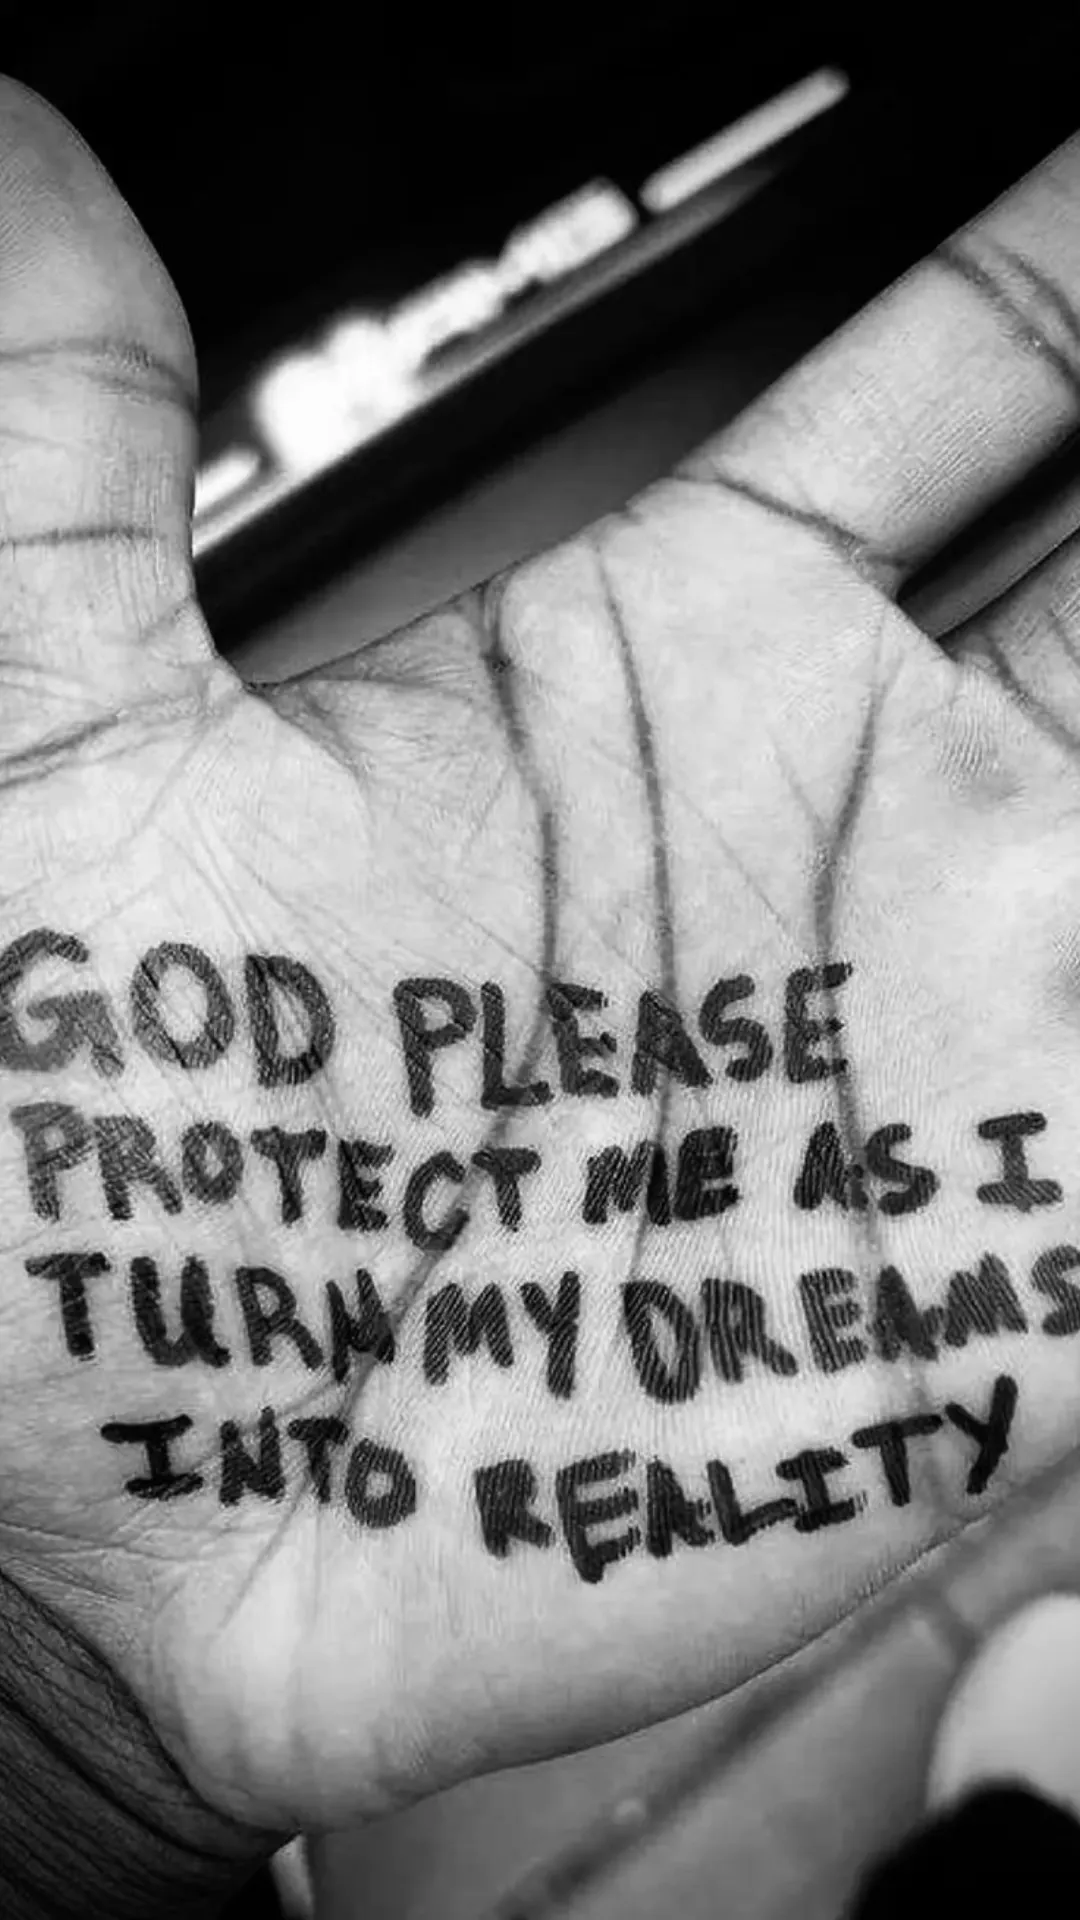 GOD PLEASE
PROTECT ME AS I
TURN MY DREAMS
INTO REALITY